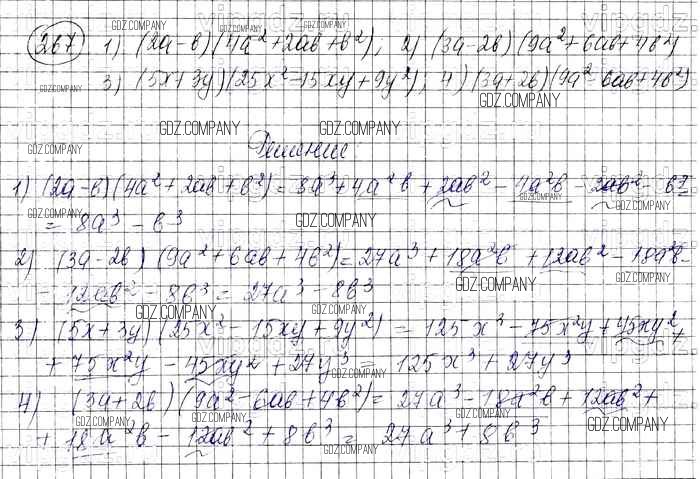 267 1) (2a-b)(4a²+2ab+b²); 2) (3a-2b)(9a²+6ab+4b²)
3) (5x+3y)(25x²-15xy+9y²); 4) (3a+2b)(9a²-6ab+4b²)
Решение:
1) (2a-b)(4a²+2ab+b²)=8a³+4a²b+2ab²-4a²b-2ab²-b³=
=8a³-b³
2) (3a-2b)(9a²+6ab+4b²)=27a³+18a²b+12ab²-18a²b-
-12ab²-8b³=27a³-8b³
3) (5x+3y)(25x²-15xy+9y²)=125x³-75x²y+45xy²+
+75x²y-45xy²+27y³=125x³+27y³
4) (3a+2b)(9a²-6ab+4b²)=27a³-18a²b+12ab²+
+18a²b-12ab²+8b³=27a³+8b³
GDZ.COMPANY